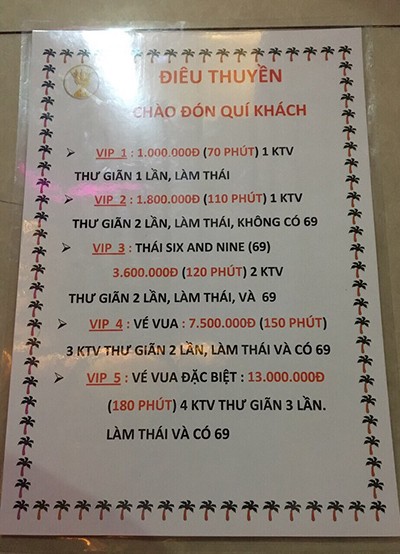 ĐIÊU THUYỀN
CHÀO ĐÓN QUÍ KHÁCH
➢ VIP 1 : 1.000.000Đ (70 PHÚT) 1 KTV
THƯ GIÃN 1 LẦN, LÀM THÁI
➢ VIP 2 : 1.800.000Đ (110 PHÚT) 1 KTV
THƯ GIÃN 2 LẦN, LÀM THÁI, KHÔNG CÓ 69
➢ VIP 3 : THÁI SIX AND NINE (69)
3.600.000Đ (120 PHÚT) 2 KTV
THƯ GIÃN 2 LẦN, LÀM THÁI, VÀ 69
➢ VIP 4 : VÉ VUA : 7.500.000Đ (150 PHÚT)
3 KTV THƯ GIÃN 2 LẦN, LÀM THÁI VÀ CÓ 69
➢ VIP 5 : VÉ VUA ĐẶC BIỆT : 13.000.000Đ
(180 PHÚT) 4 KTV THƯ GIÃN 3 LẦN.
LÀM THÁI VÀ CÓ 69